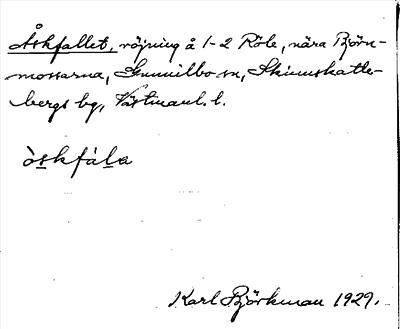 Åskfallet, röjning å 1-2 Röle, nära Björn-
mossarna, Gunnilbo sn, Skinnskatte-
bergs bg, Västmanl. l.
òskfàla
Karl Björkman 1929.